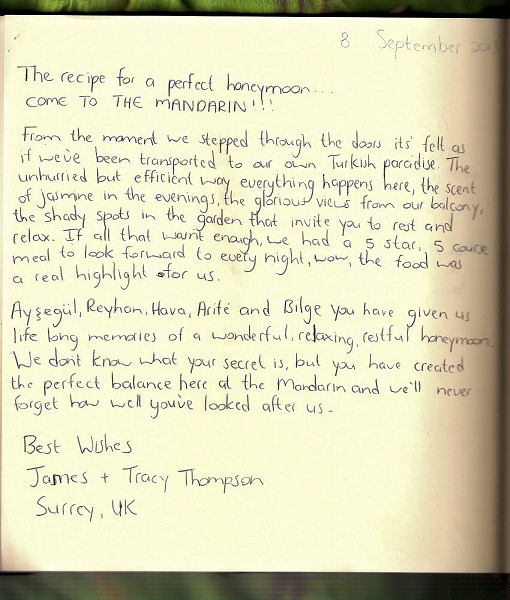 8 September 2013
The recipe for a perfect honeymoon...
COME TO THE MANDARIN!!!
From the moment we stepped through the doors its' felt as
if we've been transported to our own Turkish paradise. The
unhurried but efficient way everything happens here, the scent
of jasmine in the evenings, the glorious views from our balcony,
the shady spots in the garden that invite you to rest and
relax. If all that wasn't enough, we had a 5 star, 5 course
meal to look forward to every night, wow, the food was
a real highlight for us.
Ayşegül, Reyhan, Hava, Arife and Bilge you have given us
life long memories of a wonderful, relaxing, restful honeymoon.
We don't know what your secret is, but you have created
the perfect balance here at the Mandarin and we'll never
forget how well you've looked after us.
Best Wishes
James + Tracy Thompson
Surrey, UK